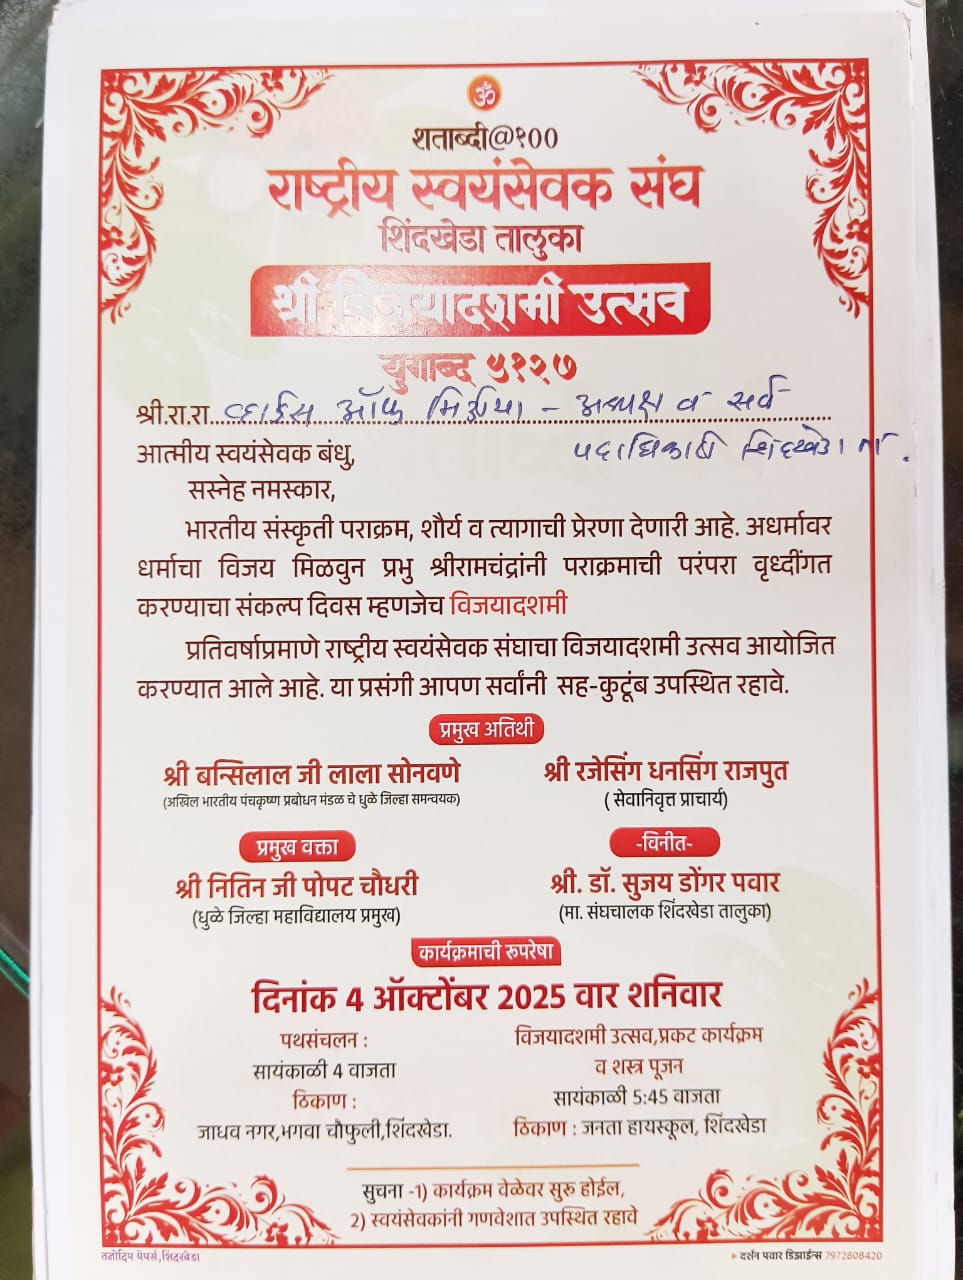 ॐ
शताब्दी@१००
राष्ट्रीय स्वयंसेवक संघ
शिंदखेडा तालुका
श्री विजयादशमी उत्सव
युगाब्द ५१२७
श्री.रा.रा. व्हाईस ऑफ मिडीया - अध्यक्ष व सर्व
पदाधिकारी शिंदखेडा ता.
आत्मीय स्वयंसेवक बंधु,
सस्नेह नमस्कार,
भारतीय संस्कृती पराक्रम, शौर्य व त्यागाची प्रेरणा देणारी आहे. अधर्मावर
धर्माचा विजय मिळवुन प्रभु श्रीरामचंद्रांनी पराक्रमाची परंपरा वृध्दींगत
करण्याचा संकल्प दिवस म्हणजेच विजयादशमी
प्रतिवर्षाप्रमाणे राष्ट्रीय स्वयंसेवक संघाचा विजयादशमी उत्सव आयोजित
करण्यात आले आहे. या प्रसंगी आपण सर्वांनी सह-कुटूंब उपस्थित रहावे.
प्रमुख अतिथी
श्री बन्सिलाल जी लाला सोनवणे
(अखिल भारतीय पंचकृष्ण प्रबोधन मंडळ चे धुळे जिल्हा समन्वयक)
श्री रजेसिंग धनसिंग राजपुत
( सेवानिवृत्त प्राचार्य)
प्रमुख वक्ता
श्री नितिन जी पोपट चौधरी
(धुळे जिल्हा महाविद्यालय प्रमुख)
-विनीत-
श्री. डॉ. सुजय डोंगर पवार
(मा. संघचालक शिंदखेडा तालुका)
कार्यक्रमाची रूपरेषा
दिनांक 4 ऑक्टोंबर 2025 वार शनिवार
पथसंचलन :
सायंकाळी 4 वाजता
ठिकाण :
जाधव नगर,भगवा चौफुली,शिंदखेडा.
विजयादशमी उत्सव,प्रकट कार्यक्रम
व शस्त्र पूजन
सायंकाळी 5:45 वाजता
ठिकाण : जनता हायस्कूल, शिंदखेडा
सुचना -1) कार्यक्रम वेळेवर सुरू होईल,
2) स्वयंसेवकांनी गणवेशात उपस्थित रहावे
पेपर्स,शिंदखेडा
दर्शन पवार डिझाईन्स 7972808420